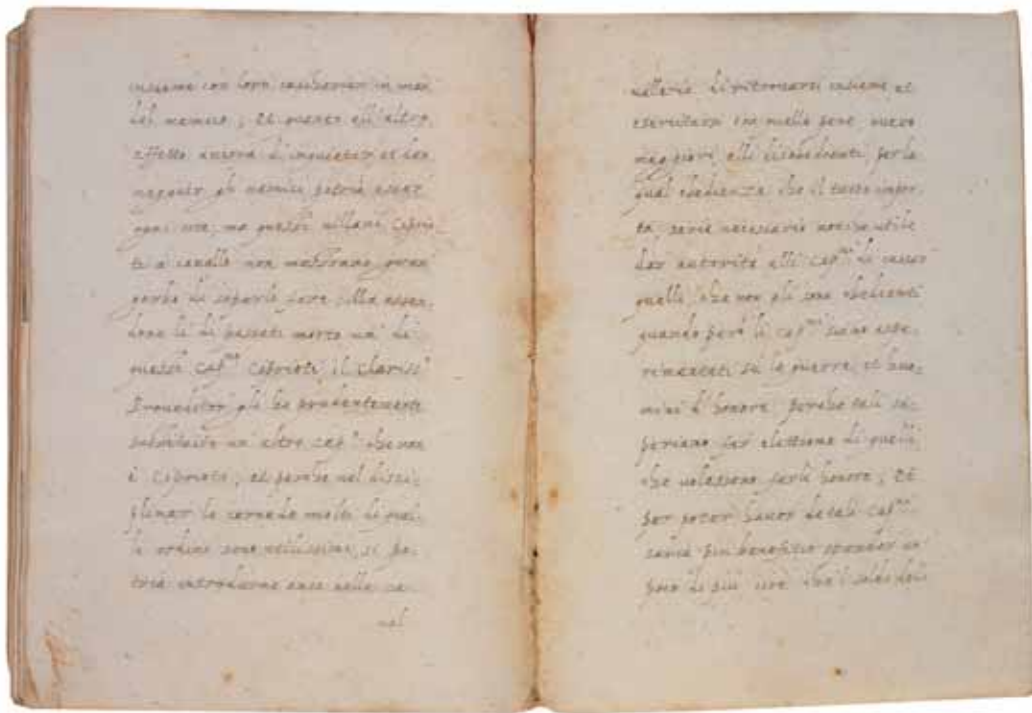 insieme con loro cascheriano in man
del nemico; et quanto all'altro
effetto ancora di inquietar et dan
neggiar gli nemici potria esser
ogni cosa, ma questi villani Caprio
ti a cavallo non
perho di saperlo fare
done li dì passati morto un di
questi Cap.ni Caprioti il Clariss.o
Proveditor gli ha prudentemente
substituito un altro cap.o che non
è Caprioto, et perche nel disci-
plinar le cernede molti di quel-
li ordini sono utilissimi, si po-
tria introdurne anco nelle ca-
val
vallerie di ritrovarsi insieme et
esercitarsi con quelle pene, overo
maggiori, alli disobedienti per la
qual obedienza che il tutto impor-
ta, saria necessario non che utile
dar autorità alli Cap.ni di cassar
quelli, che non gli sono obedienti
quando però li cap.ni siano espe-
rimentati sù le guerre, et huo-
mini d'honore perche tali sa-
periano far elettione di quelli
che volessono farli honore, Et
per poter haver de tali Cap.ni
saria più beneficio spender un
poco di più che'l soldo deli